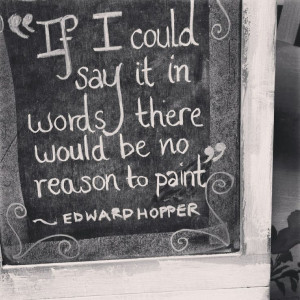 “If I could
say it in
words there
would be no
reason to paint”
~ EDWARD HOPPER